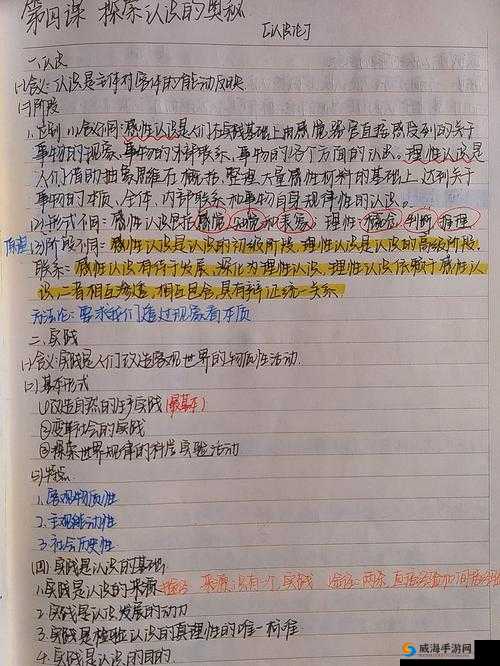 第四课 探索认识的奥秘
【认识论】
一.认识
(一)含义:认识是主体对客体的能动反映.
(二)阶段
1.区别:(1)含义不同:感性认识是人们在实践基础上由感觉器官直接感受到的关于
事物的现象、事物的外部联系、事物的各个方面的认识。理性认识是
人们借助抽象思维在概括、整理大量感性材料的基础上,达到关于
事物的本质、全体、内部联系和事物自身规律性的认识。
(2)形式不同:感性认识包括感觉 知觉和表象 理性:概念 判断 推理
(3)阶段不同:感性认识是认识的初级阶段,理性认识是认识的高级阶段.
联系:感性认识有待于发展、深化为理性认识,理性认识依赖于感性认
识,二者相互渗透,相互包含,具有辩证统一关系
方法论:要求我们透过现象看本质
二.实践
(一)含义:实践是人们改造客观世界的物质性活动.
(二)基本形式
①改造自然的生产实践(最基本)
②变革社会的实践
③探索世界规律的科学实验活动
(三)特点
1.客观物质性
2.主观能动性
3.社会历史性
(四)实践是认识的基础
1.实践是认识的来源 来源只有一个 实践 途径:两条 直接经验和间接经验
2.实践是认识发展的动力
3.实践是检验认识的真理性的唯一标准
4.实践是认识的目的
威海手游网